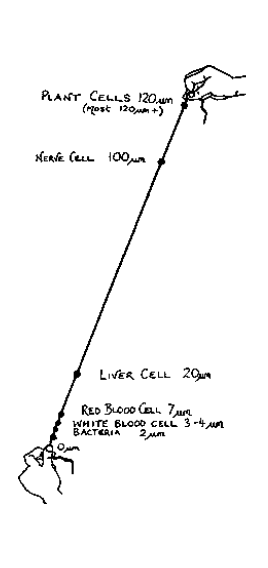 PLANT CELLS 120µm
(MOST 120µm+)
NERVE CELL 100µm
LIVER CELL 20µm
RED BLOOD CELL 7µm
WHITE BLOOD CELL 3-4µm
BACTERIA 2µm
0µm